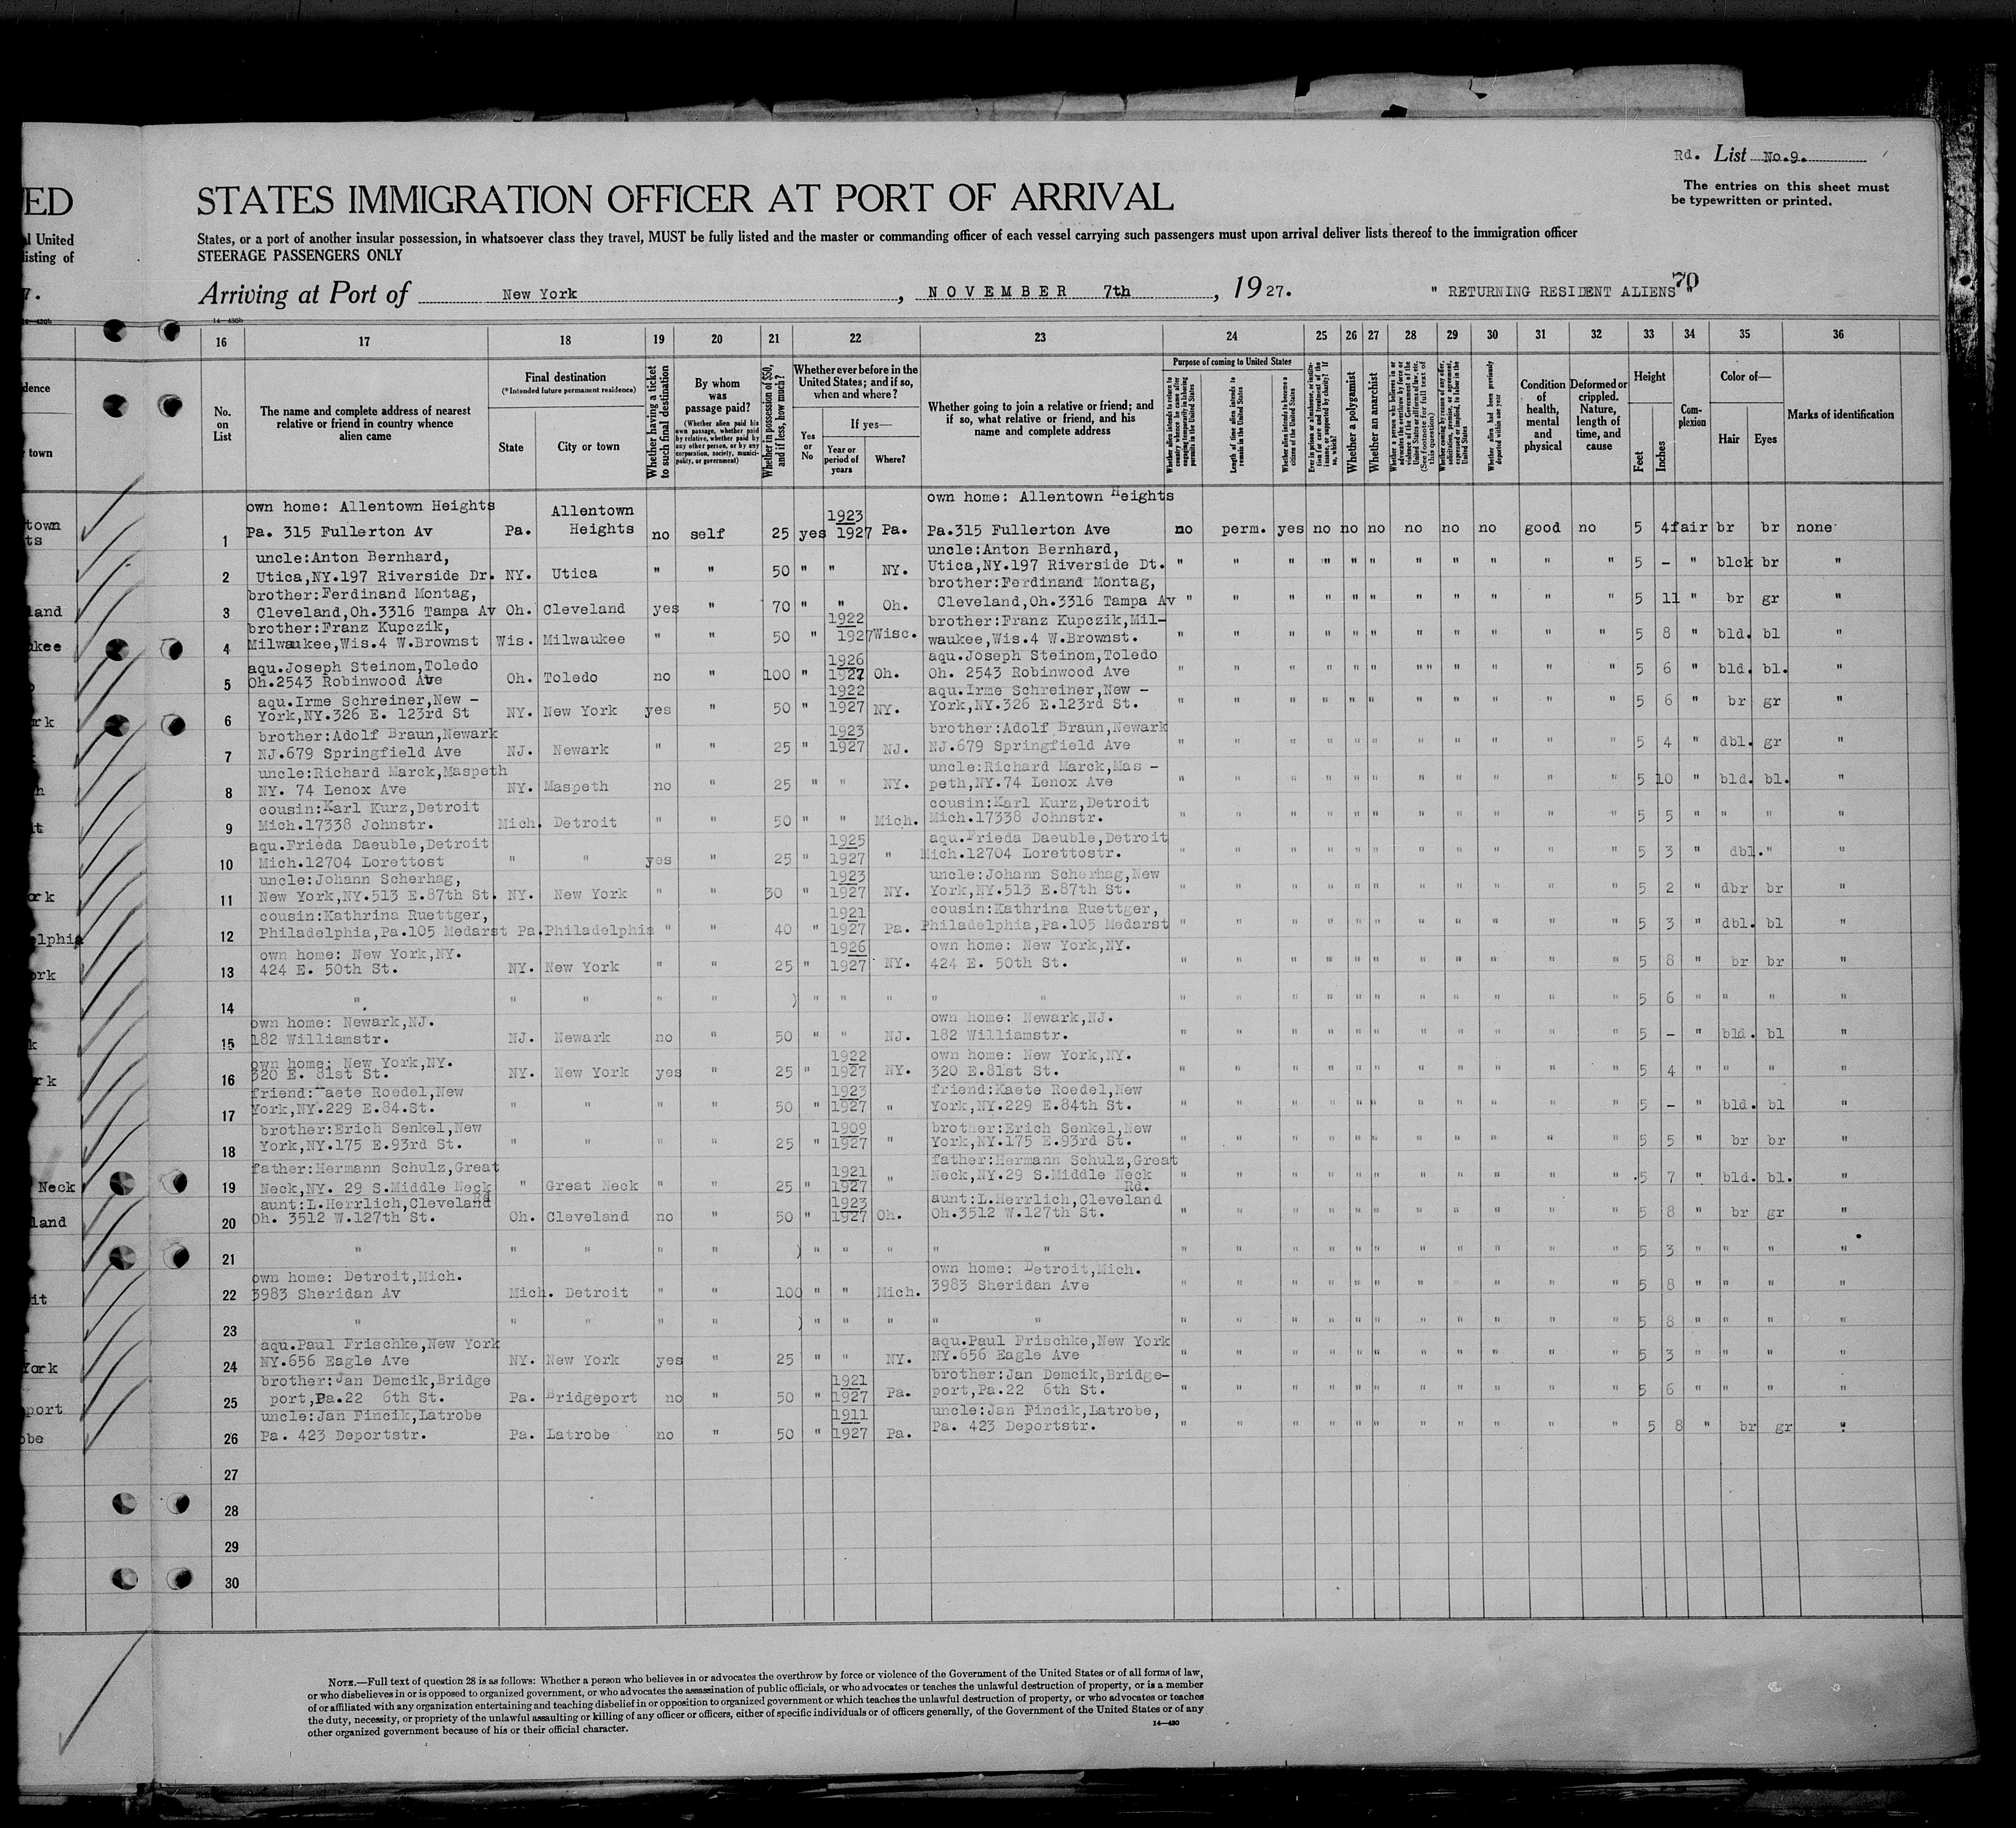 Rd. List No.9.
The entries on this sheet must
be typewritten or printed.
ED
STATES IMMIGRATION OFFICER AT PORT OF ARRIVAL
l United
isting of
States, or a port of another insular possession, in whatsoever class they travel, MUST be fully listed and the master or commanding officer of each vessel carrying such passengers must upon arrival deliver lists thereof to the immigration officer
STEERAGE PASSENGERS ONLY
7.
Arriving at Port of New York, NOVEMBER 7th, 1927. " RETURNING RESIDENT ALIENS " 70
14—430b
16 17 18 19 20 21 22 23 24 25 26 27 28 29 30 31 32 33 34 35 36
No. on List
The name and complete address of nearest relative or friend in country whence alien came
Final destination
(*Intended future permanent residence)
State
City or town
Whether having a ticket to such final destination
By whom was passage paid?
(Whether alien paid his own passage, whether paid by relative, whether paid by any other person, or by any corporation, society, municipality, or government)
Whether in possession of $50, and if less, how much?
Whether ever before in the United States; and if so, when and where?
Yes or No
If yes—
Year or period of years
Where?
Whether going to join a relative or friend; and if so, what relative or friend, and his name and complete address
Purpose of coming to United States
Whether alien intends to return to country whence he came after engaging temporarily in laboring pursuits in the United States
Length of time alien intends to remain in the United States
Whether alien intends to become a citizen of the United States
Ever in prison or almshouse, or institution for care and treatment of the insane, or supported by charity? If so, which?
Whether a polygamist
Whether an anarchist
Whether a person who believes in or advocates the overthrow by force or violence of the Government of the United States or all forms of law, etc. (See footnote for full text of this question)
Whether coming by reason of any offer, solicitation, promise, or agreement, expressed or implied, to labor in the United States
Whether alien had been previously deported within one year
Condition of health, mental and physical
Deformed or crippled. Nature, length of time, and cause
Height
Feet
Inches
Complexion
Color of—
Hair
Eyes
Marks of identification
own home: Allentown Heights Allentown 1923 own home: Allentown Heights
1 Pa. 315 Fullerton Av Pa. Heights no self 25 yes 1927 Pa. Pa.315 Fullerton Ave no perm. yes no no no no no no good no 5 4 fair br br none
uncle:Anton Bernhard, uncle:Anton Bernhard,
2 Utica,NY.197 Riverside Dr. NY. Utica " " 50 " " NY. Utica,NY.197 Riverside Dt. " " " " " " " " " " " 5 - " blck br "
brother:Ferdinand Montag, brother:Ferdinand Montag,
3 Cleveland,Oh.3316 Tampa Av Oh. Cleveland yes " 70 " " Oh. Cleveland,Oh.3316 Tampa Av " " " " " " " " " " " 5 11 " br gr "
brother:Franz Kupczik, 1922 brother:Franz Kupczik,Mil-
4 Milwaukee,Wis.4 W.Brownst Wis. Milwaukee " " 50 " 1927 Wisc. waukee,Wis.4 W.Brownst. " " " " " " " " " " " 5 8 " bld. bl "
aqu.Joseph Steinom,Toledo 1926 aqu.Joseph Steinom,Toledo
5 Oh.2543 Robinwood Ave Oh. Toledo no " 100 " 1927 Oh. Oh. 2543 Robinwood Ave " " " " " " " " " " " " 5 6 " bld. bl. "
aqu.Irme Schreiner,New - 1922 aqu.Irme Schreiner,New -
6 York,NY.326 E. 123rd St NY. New York yes " 50 " 1927 NY. York,NY.326 E.123rd St. " " " " " " " " " " " 5 6 " br gr "
brother:Adolf Braun,Newark 1923 brother:Adolf Braun,Newark
7 NJ.679 Springfield Ave NJ. Newark " " 25 " 1927 NJ. NJ.679 Springfield Ave " " " " " " " " " " " 5 4 " dbl. gr "
uncle:Richard Marck,Maspeth uncle:Richard Marck,Mas -
8 NY. 74 Lenox Ave NY. Maspeth no " 25 " " NY. peth,NY.74 Lenox Ave " " " " " " " " " " " 5 10 " bld. bl. "
cousin:Karl Kurz,Detroit cousin:Karl Kurz,Detroit
9 Mich.17338 Johnstr. Mich. Detroit " " 50 " " Mich. Mich.17338 Johnstr. " " " " " " " " " " " 5 5 " " " "
aqu.Frieda Daeuble,Detroit 1925 aqu.Frieda Daeuble,Detroit
10 Mich.12704 Lorettost " " yes " 25 " 1927 " Mich.12704 Lorettostr. " " " " " " " " " " " 5 3 " dbl. " "
uncle:Johann Scherhag, 1923 uncle:Johann Scherhag,New
11 New York,NY.513 E.87th St. NY. New York " " 30 " 1927 NY. York,NY.513 E.87th St. " " " " " " " " " " " 5 2 " dbr br "
cousin:Kathrina Ruettger, 1921 cousin:Kathrina Ruettger,
12 Philadelphia,Pa.105 Medarst Pa. Philadelphia " " 40 " 1927 Pa. Philadelphia,Pa.105 Medarst " " " " " " " " " " " 5 3 " dbl. bl "
own home: New York,NY. 1926 own home: New York,NY.
13 424 E. 50th St. NY. New York " " 25 " 1927 NY. 424 E. 50th St. " " " " " " " " " " " 5 8 " br br "
14 " " " " " ) " " " " " " " " " " " " " " " " " 5 6 " " " "
own home: Newark,NJ. own home: Newark,NJ.
15 182 Williamstr. NJ. Newark no " 50 " " NJ. 182 Williamstr. " " " " " " " " " " " 5 - " bld. bl "
own home: New York,NY. 1922 own home: New York,NY.
16 320 E. 81st St. NY. New York yes " 25 " 1927 NY. 320 E.81st St. " " " " " " " " " " " 5 4 " " " "
friend:Kaete Roedel,New 1923 friend:Kaete Roedel,New
17 York,NY.229 E.84.St. " " " " 50 " 1927 " York,NY.229 E.84th St. " " " " " " " " " " " 5 - " bld. bl "
brother:Erich Senkel,New 1909 brother:Erich Senkel,New
18 York,NY.175 E.93rd St. " " " " 25 " 1927 " York,NY.175 E.93rd St. " " " " " " " " " " " 5 5 " br br "
father:Hermann Schulz,Great 1921 father:Hermann Schulz,Great
19 Neck,NY. 29 S.Middle Neck Rd " Great Neck " " 25 " 1927 " Neck,NY.29 S.Middle Neck Rd. " " " " " " " " " " " 5 7 " bld. bl. "
aunt:L.Herrlich,Cleveland 1923 aunt:L.Herrlich,Cleveland
20 Oh. 3512 W.127th St. Oh. Cleveland no " 50 " 1927 Oh. Oh.3512 W.127th St. " " " " " " " " " " " 5 8 " br gr "
21 " " " " " ) " " " " " " " " " " " " " " " " " 5 3 " " " "
own home: Detroit,Mich. own home: Detroit,Mich.
22 3983 Sheridan Av Mich. Detroit " " 100 " " Mich. 3983 Sheridan Ave " " " " " " " " " " " 5 8 " " " "
23 " " " " " ) " " " " " " " " " " " " " " " " " 5 8 " " " "
aqu.Paul Frischke,New York aqu.Paul Frischke,New York
24 NY.656 Eagle Ave NY. New York yes " 25 " " NY. NY.656 Eagle Ave " " " " " " " " " " " 5 3 " " " "
brother:Jan Demcik,Bridge 1921 brother:Jan Demcik,Bridge-
25 port,Pa.22 6th St. Pa. Bridgeport no " 50 " 1927 Pa. port,Pa.22 6th St. " " " " " " " " " " " 5 6 " " " "
uncle:Jan Fincik,Latrobe 1911 uncle:Jan Fincik,Latrobe,
26 Pa. 423 Deportstr. Pa. Latrobe no " 50 " 1927 Pa. Pa. 423 Deportstr. " " " " " " " " " " " 5 8 " br gr "
27
28
29
30
NOTE.—Full text of question 28 is as follows: Whether a person who believes in or advocates the overthrow by force or violence of the Government of the United States or of all forms of law,
or who disbelieves in or is opposed to organized government, or who advocates the assassination of public officials, or who advocates or teaches the unlawful destruction of property, or is a member
of or affiliated with any organization entertaining and teaching disbelief in or opposition to organized government or which teaches the unlawful destruction of property, or who advocates or teaches
the duty, necessity, or propriety of the unlawful assaulting or killing of any officer or officers, either of specific individuals or of officers generally, of the Government of the United States or of any
other organized government because of his or their official character.
14—430